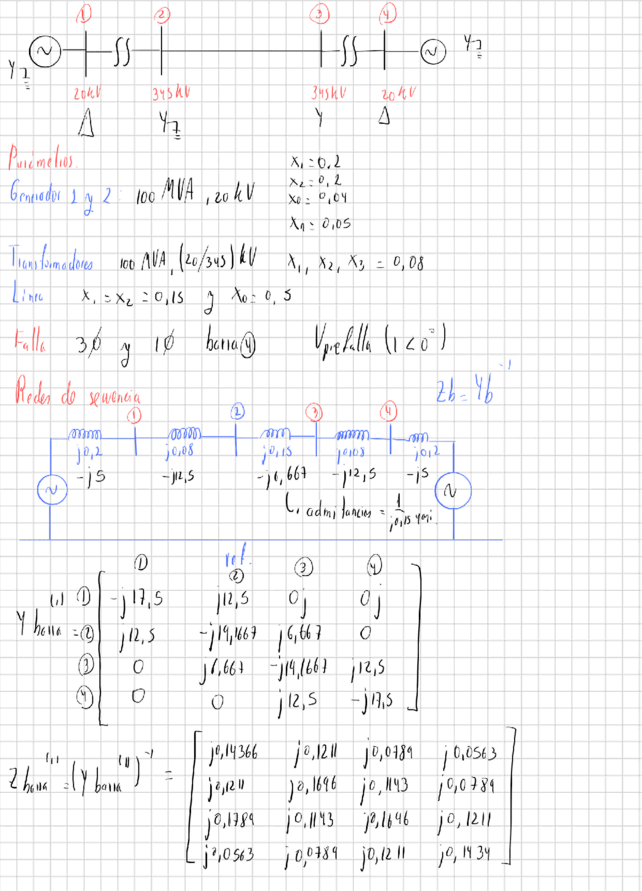 ① ② ③ ④
Y⏚ Y⏚
20kV 345kV 345kV 20kV
Δ Y⏚ Y Δ
Parámetros
Generador 1 y 2: 100 MVA, 20 kV
x₁=0,2
x₂=0,2
x₀=0,04
xₙ=0,05
Transformadores 100 MVA, (20/345) kV x₁, x₂, x₃ = 0,08
Línea x₁=x₂=0,15 y x₀=0,5
Falla 3ϕ y 1ϕ barra ④ Vprefalla (1<0°)
Redes de secuencia Zb=Yb⁻¹
① ② ③ ④
j0,2 j0,08 j0,15 j0,08 j0,2
-j5 -j12,5 -j6,667 -j12,5 -j5
admitancias = 1/j0,15
ref.
① ② ③ ④
Y barra⁽¹⁾ =
① -j17,5 j12,5 0j 0j
② j12,5 -j19,1667 j6,667 0
③ 0 j6,667 -j19,1667 j12,5
④ 0 0 j12,5 -j17,5
Z barra⁽¹⁾ = (Y barra⁽¹⁾)⁻¹ =
j0,14366 j0,1211 j0,0789 j0,0563
j0,1211 j0,1696 j0,1143 j0,0789
j0,1789 j0,1143 j0,1646 j0,1211
j0,0563 j0,0789 j0,1211 j0,1434